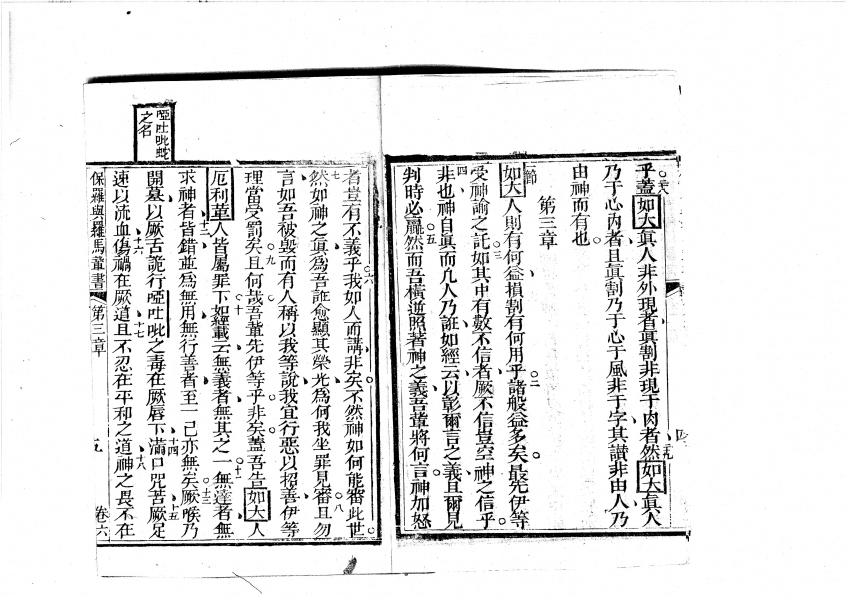 乎蓋如大眞人非外現者眞割非現于肉者然如大眞人
乃于心內者且眞割乃于心于風非于字其讃非由人乃
由神而有也
第三章
如大人則有何益損割有何用乎諸般益多矣最先伊等
受神諭之託如其中有數不信者厥不信豈空神之信乎
非也神自眞而凡人乃誑如經云以彰爾言之義且爾見
判時必贏然而吾橫逆照著神之義吾輩將何言神加怒
者豈有不義乎我如人而講非矣不然神如何能審此世
然如神之眞爲吾誑愈顯其榮光爲何我坐罪見審且勿
言如吾被毀而有人稱以我等說我宜行惡以招善伊等
理當受罰矣且何哉吾輩先伊等乎非矣蓋吾告如大人
厄利革人皆屬罪下如經載云無義者無其之一無達者無
求神者皆錯並爲無用無行善者至一已亦無矣厥喉乃
開墓以厥舌詭行啞吐呲之毒在厥唇下滿口咒苦厥足
速以流血傷禍在厥道且不忍在平和之道神之畏不在
啞吐呲蛇
之名
保羅與羅馬輩書 第三章 五 卷六